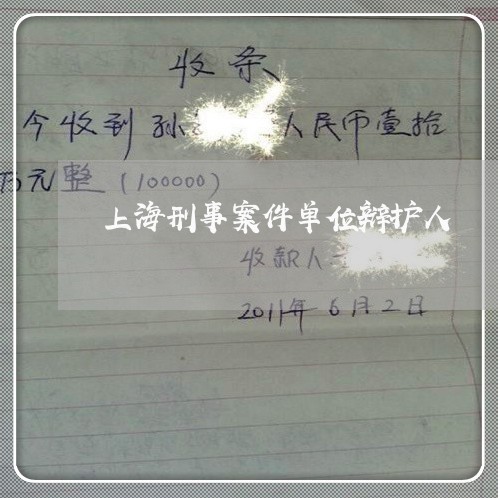 收条
今收到孙 人民币壹拾
万元整(100000)
上海刑事案件单位辩护人
收款人
2011年6月2日